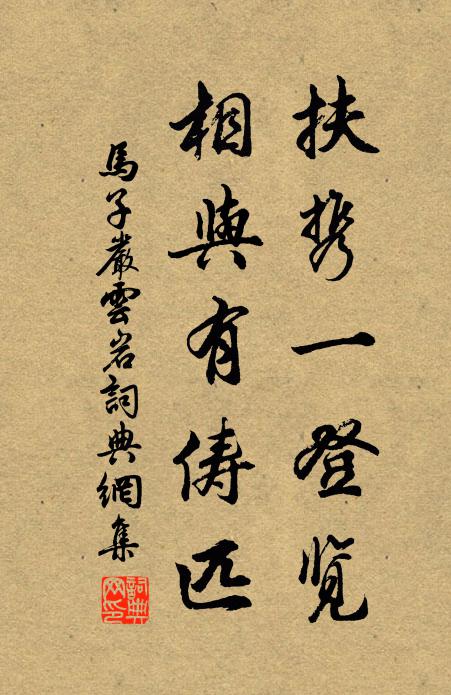 扶携一登览
相與有俦匹
馬子嚴雲岩詞典網集
詞典网印